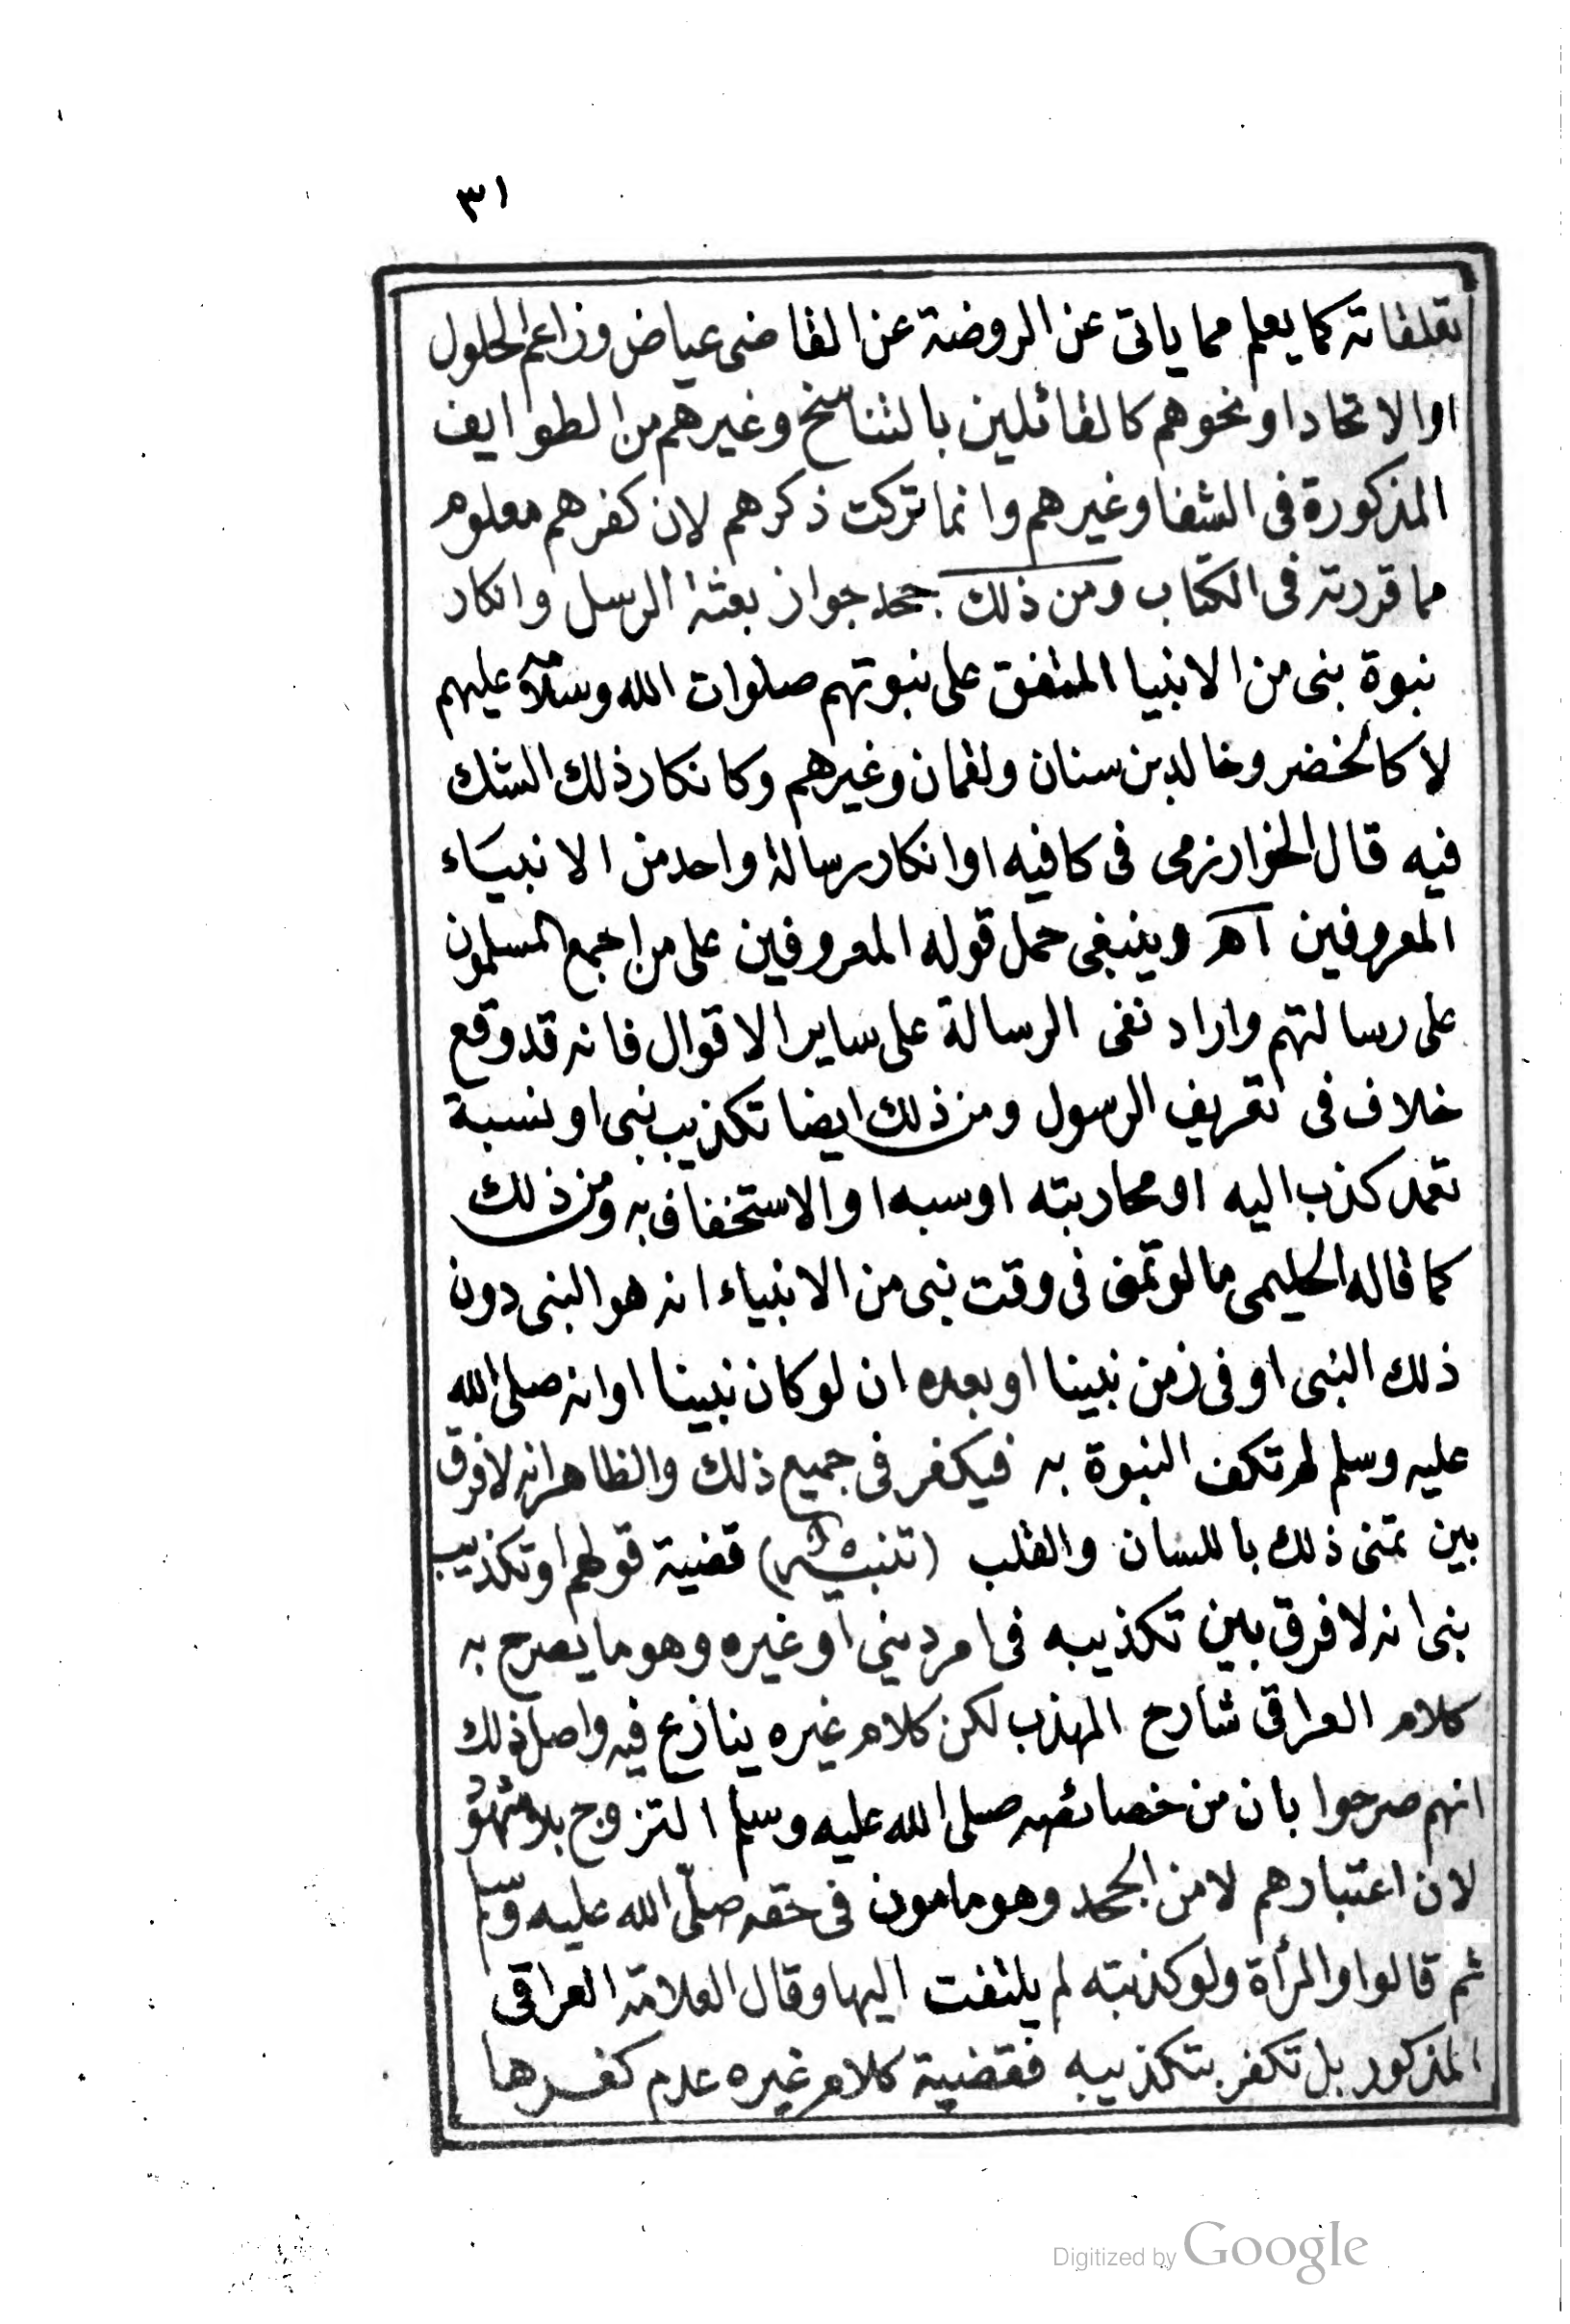 ٣١
تعلقاته كما يعلم مما ياتى عن الروضة عن القاضى عياض وزاعم الحلول
او الاتحاد او نحوهم كالقائلين بالتناسخ وغيرهم من الطوايف
المذكورة فى الشفا وغيرهم وانما تركت ذكرهم لان كفرهم معلوم
مما قررته فى الكتاب ومن ذلك جحد جواز بعثة الرسل وانكار
نبوة نبى من الانبيا المتفق على نبوتهم صلوات الله وسلامه عليهم
لا كالخضر وخالد بن سنان ولقمان وغيرهم وكانكار ذلك الشك
فيه قال الخوارزمى فى كافيه او انكار رسالة واحد من الانبيَاء
المعروفين اهـ وينبغى حمل قوله المعروفين على من اجمع المسلمون
على رسالتهم واراد نفى الرسالة على ساير الاقوال فانه قد وقع
خلاف فى تعريف الرسول ومن ذلك ايضا تكذيب نبى او نسبة
تعمد كذب اليه او محاربته او سبه او الاستخفاف به ومن ذلك
كما قاله الحليمى ما لو تمنى فى وقت نبى من الانبياء انه هو النبى دون
ذلك النبى او فى زمن نبينا او بعده ان لو كان نبينا او انه صلى الله
عليه وسلم لم تكن النبوة به فيكفر فى جميع ذلك والظاهر انه لا فرق
بين تمنى ذلك باللسان والقلب (تنبيه) قضية قولهم او تكذيب
نبى انه لا فرق بين تكذيبه فى امر دينى او غيره وهو ما يصرح به
كلام العراقى شارح المهذب لكن كلام غيره ينازع فيه واصل ذلك
انهم صرحوا بان من خصائصه صلى الله عليه وسلم التزوج بلا شهود
لان اعتبارهم لامن الجحد وهو مامون فى حقه صلّى الله عليه وسلم
ثم قالوا والمرأة ولو كذبته لم يلتفت اليها وقال العلامة العراقى
المذكور بل تكفر بتكذيبه فقضية كلام غيره عدم كفرها
Digitized by Google